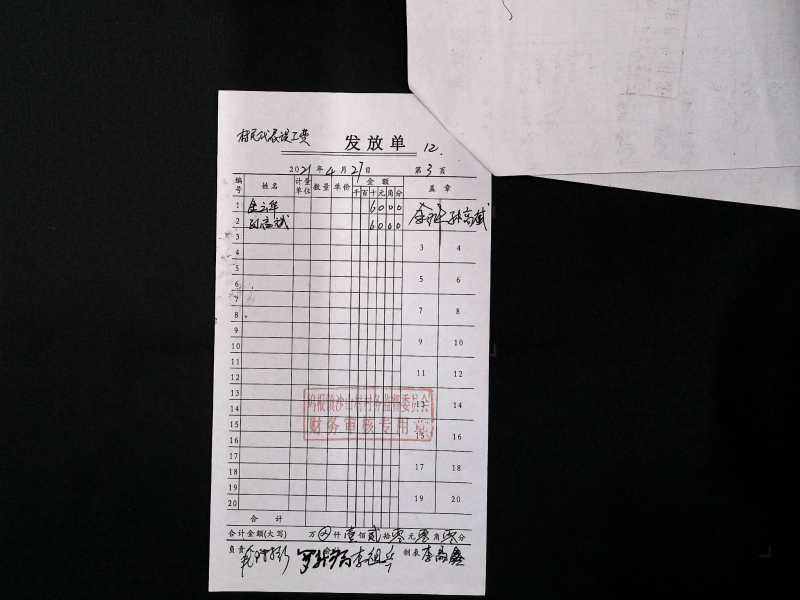 村民代表误工费 发放单 12.
2021年4月27日 第3页
编号 姓名 计量单位 数量 单价 金额 盖章
千百十元角分
1 6000
2 孙高斌 6000 孙高斌
3 3 4
4
5 5 6
6
7 7 8
8
9 9 10
10
11 11 12
12
13 13 14
14
15 15 16
16
17 17 18
18
19 19 20
20
沙山村村务监督委员会
财务审核专用章
合计
合计金额(大写) 万⊗仟壹佰贰拾零元零角零分
负责 李祖兵 制表 李高鑫